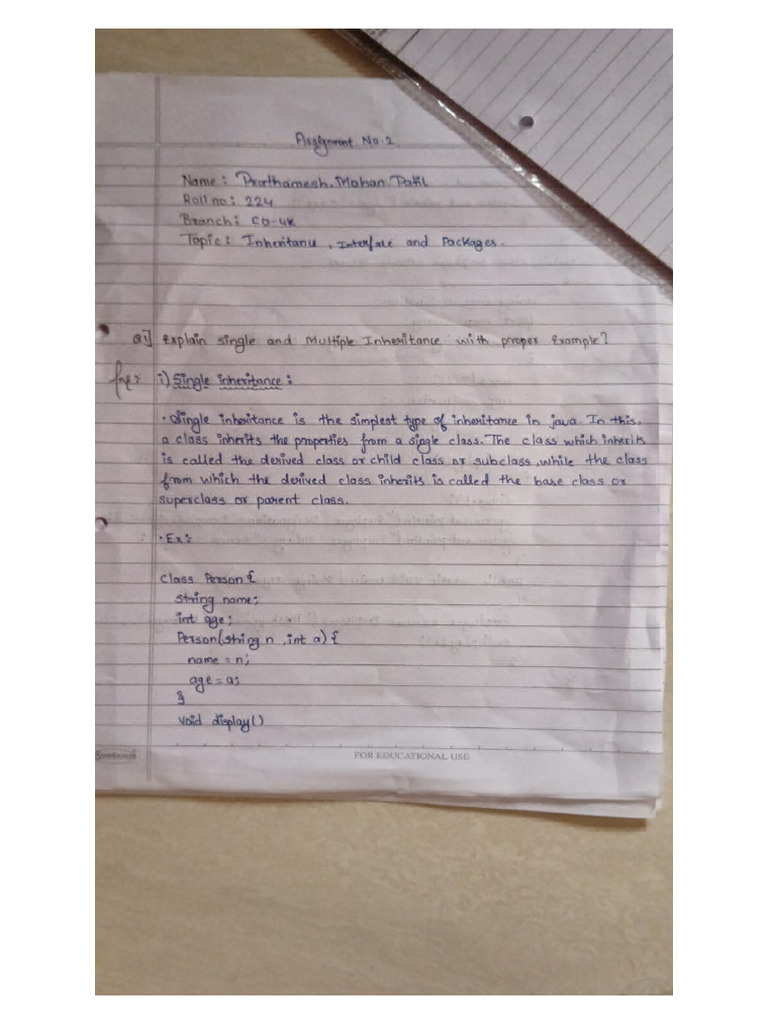 Assignment No.2
Name: Prathamesh. Mohan. Patil
Roll no: 224
Branch: CO-4K
Topic: Inheritance, Interface and Packages.
Q1] Explain Single and Multiple Inheritance with proper Example?
Ans: i) Single inheritance:
• Single inheritance is the simplest type of inheritance in java. In this,
a class inherits the properties from a single class. The class which inherits
is called the derived class or child class or subclass, while the class
from which the derived class inherits is called the base class or
superclass or parent class.
• Ex:
Class Person{
string name;
int age;
Person(string n, int a){
name = n;
age = a;
}
void display()
Sundaram
FOR EDUCATIONAL USE